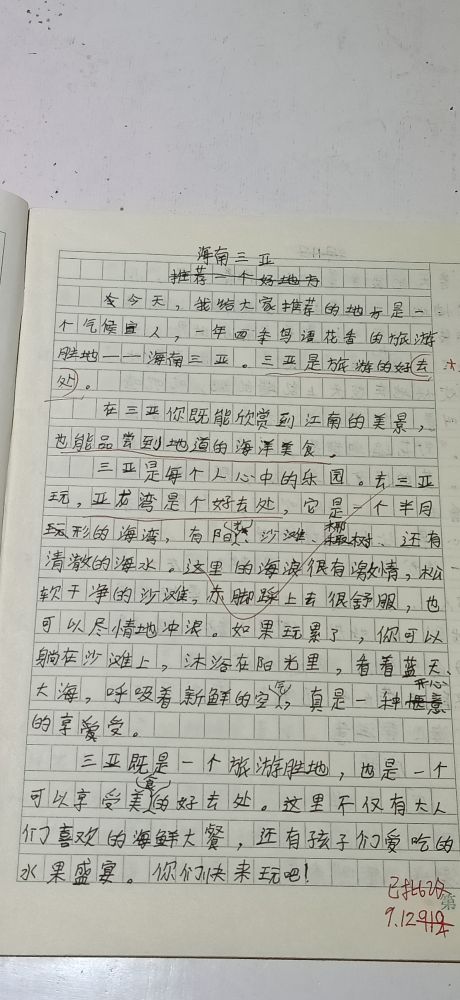 海南三亚
推荐一个好地方
今天，我给大家推荐的地方是一
个气候宜人，一年四季鸟语花香的旅游
胜地——海南三亚。三亚是旅游的好去
处。
在三亚你既能欣赏到江南的美景，
也能品尝到地道的海洋美食。
三亚是每个人心中的乐园。去三亚
玩，亚龙湾是个好去处，它是一个半月
形的海湾，有阳光、沙滩、椰树、还有
清澈的海水。这里的海浪很有激情，松
软干净的沙滩，赤脚踩上去很舒服，也
可以尽情地冲浪。如果玩累了，你可以
躺在沙滩上，沐浴在阳光里，看着蓝天、
大海，呼吸着新鲜的空气，真是一种开心
的享受。
三亚既是一个旅游胜地，也是一个
可以享受美食的好去处。这里不仅有大人
们喜欢的海鲜大餐，还有孩子们爱吃的
水果盛宴。你们快来玩吧！
9.12
第